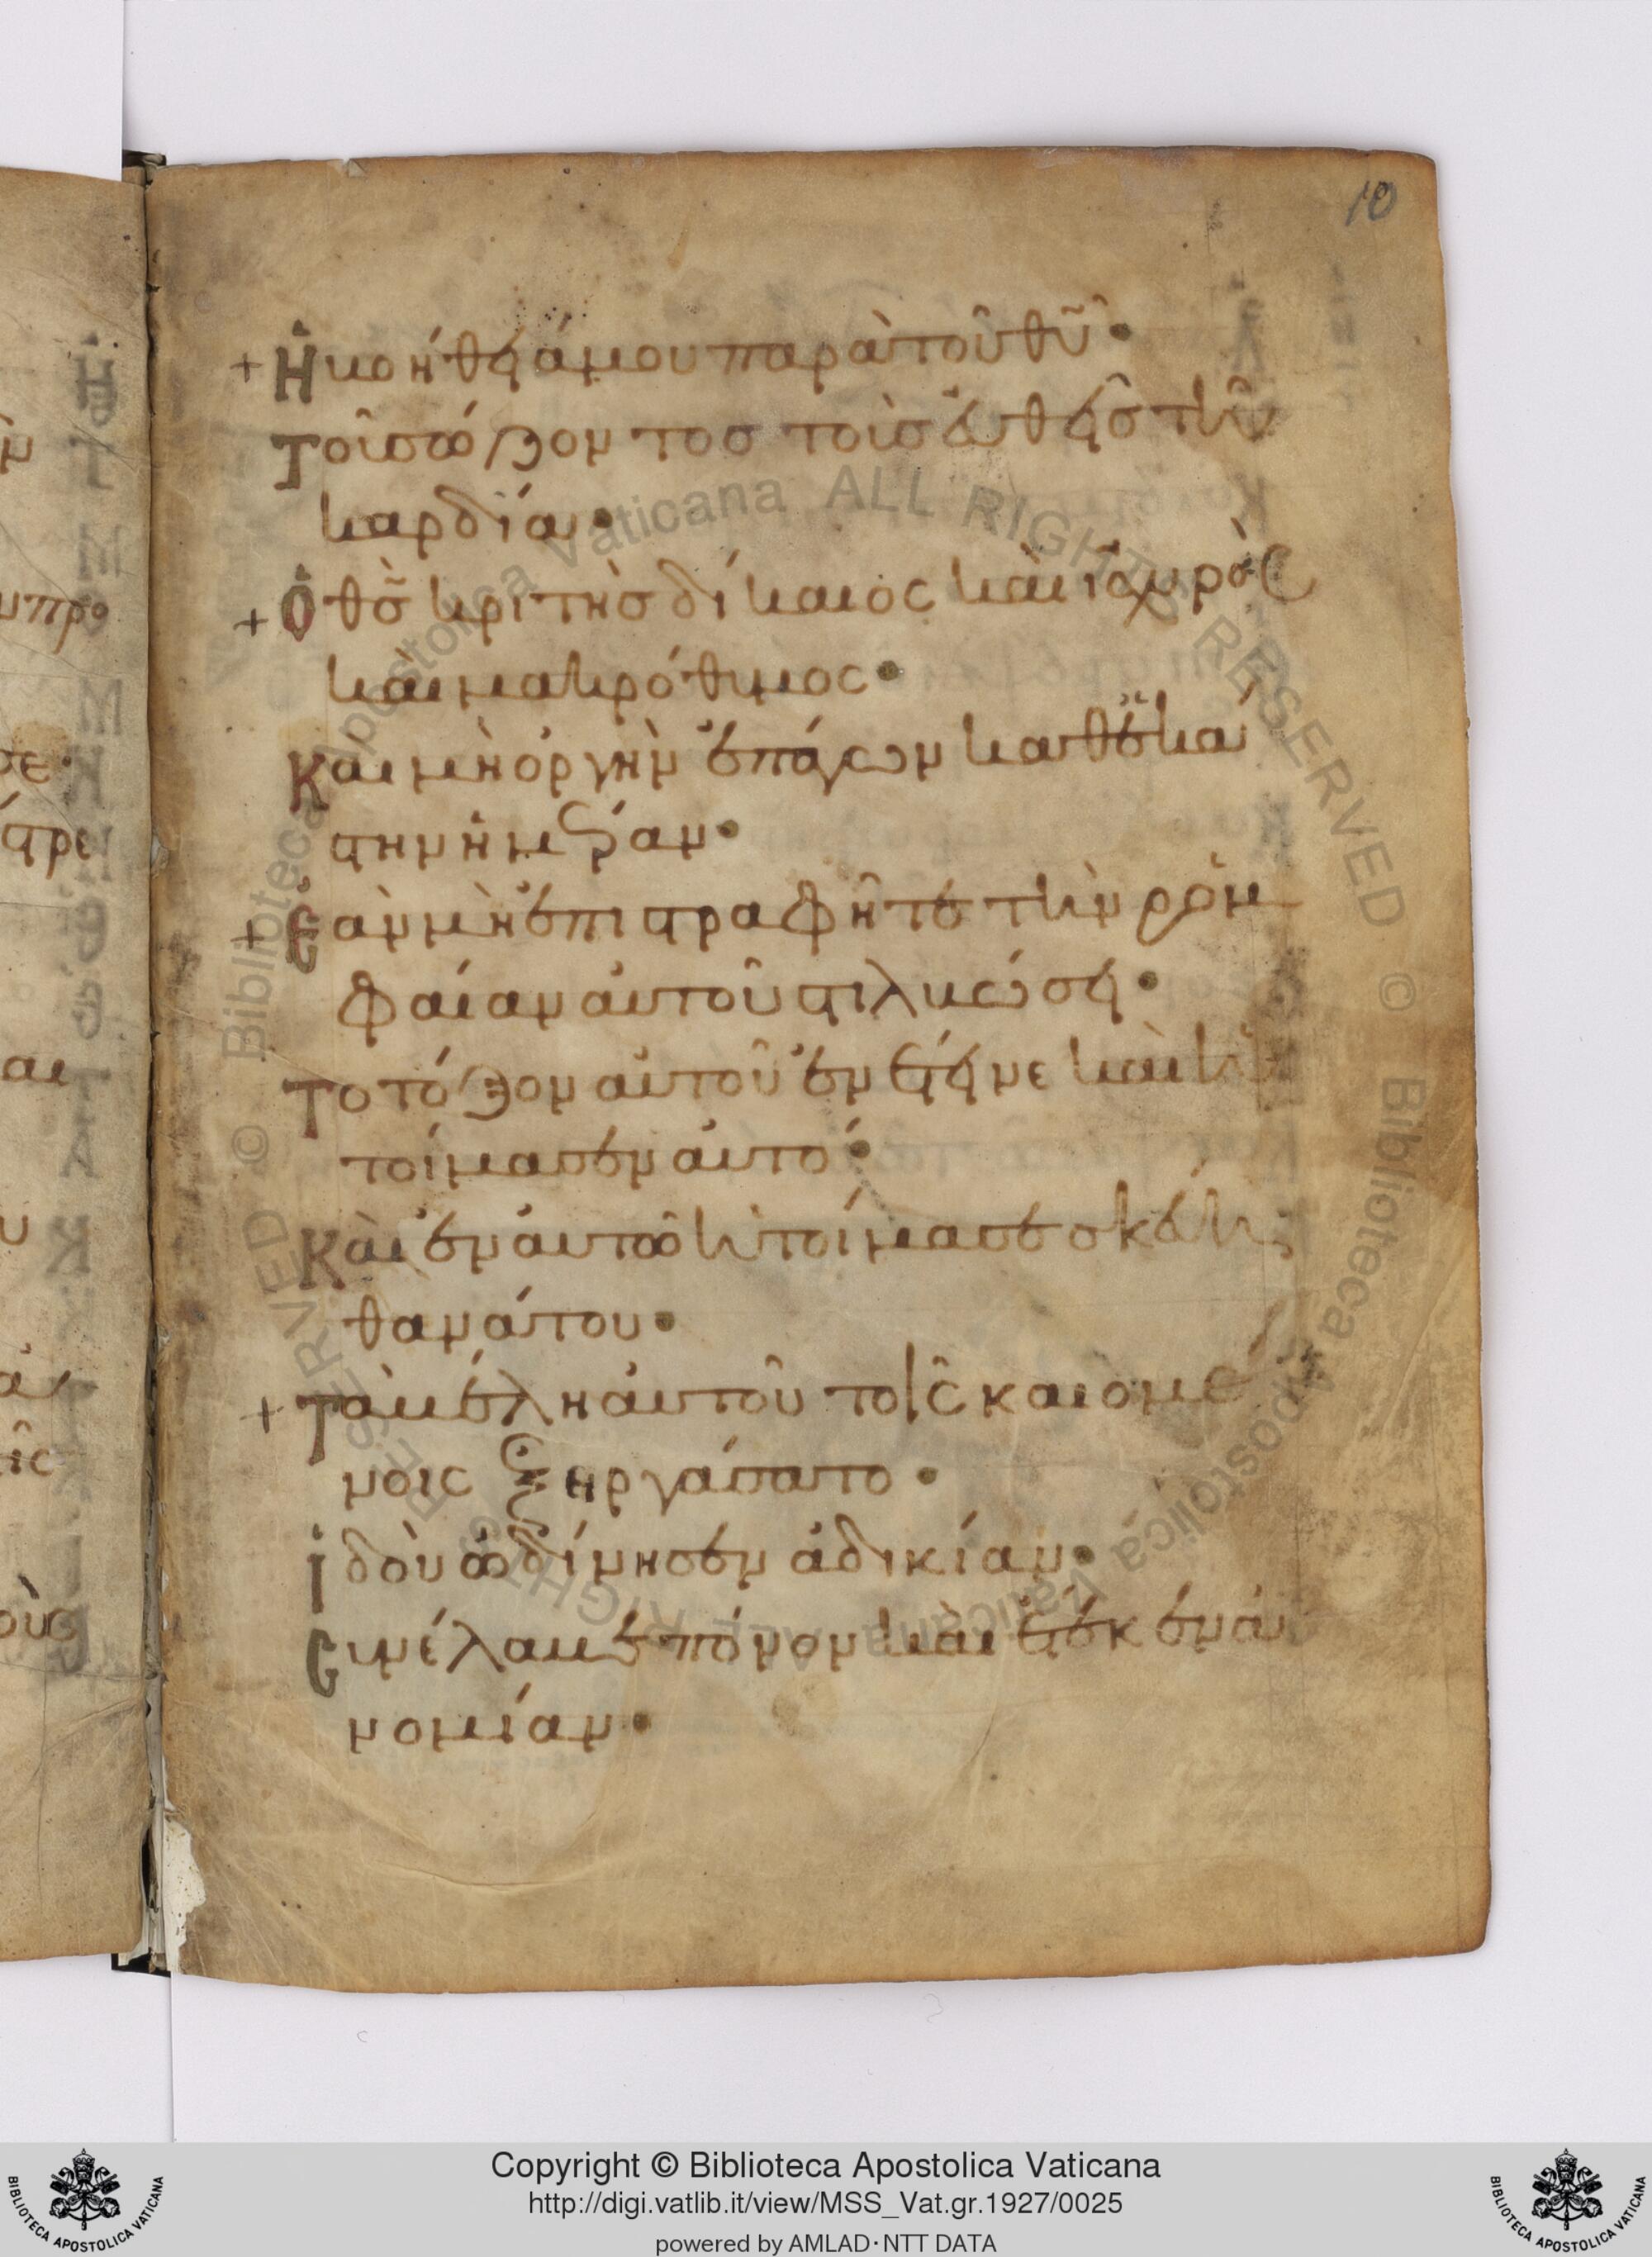 10
+ Ἡ κοήθειά μου παρὰ τοῦ θῦ·
Τοῦ σώζοντος τοὺς εὐθεῖς τῇ
καρδίᾳ·
+ Ὁ θσ̄ κριτὴς δίκαιος καὶ ἰσχυρὸς
καὶ μακρόθυμος·
Καὶ μὴ ὀργὴν ἐπάγων καθ' ἑκά
στην ἡμέραν·
+ Ἐὰν μὴ ἐπιστραφῆτε τὴν ῥομ
φαίαν αὐτοῦ στιλκώσει·
Τὸ τόξον αὐτοῦ ἐνέτεινε καὶ ἡ
τοίμασεν αὐτό·
Καὶ ἐν αὐτῷ ἡτοίμασε σκεύη
θανάτου·
+ Τὰ κέλη αὐτοῦ τοῖς καιομέ
νοις ἐξηργάσατο·
Ἰδοὺ ὠδίνησεν ἀδικίαν·
Συνέλακε πόνον καὶ ἔτεκεν ἀ
νομίαν·
© Biblioteca Apostolica Vaticana ALL RIGHTS RESERVED © Biblioteca Apostolica Vaticana ALL RIGHTS RESERVED
Copyright © Biblioteca Apostolica Vaticana
http://digi.vatlib.it/view/MSS_Vat.gr.1927/0025
powered by AMLAD·NTT DATA
BIBLIOTECA APOSTOLICA VATICANA
BIBLIOTECA APOSTOLICA VATICANA